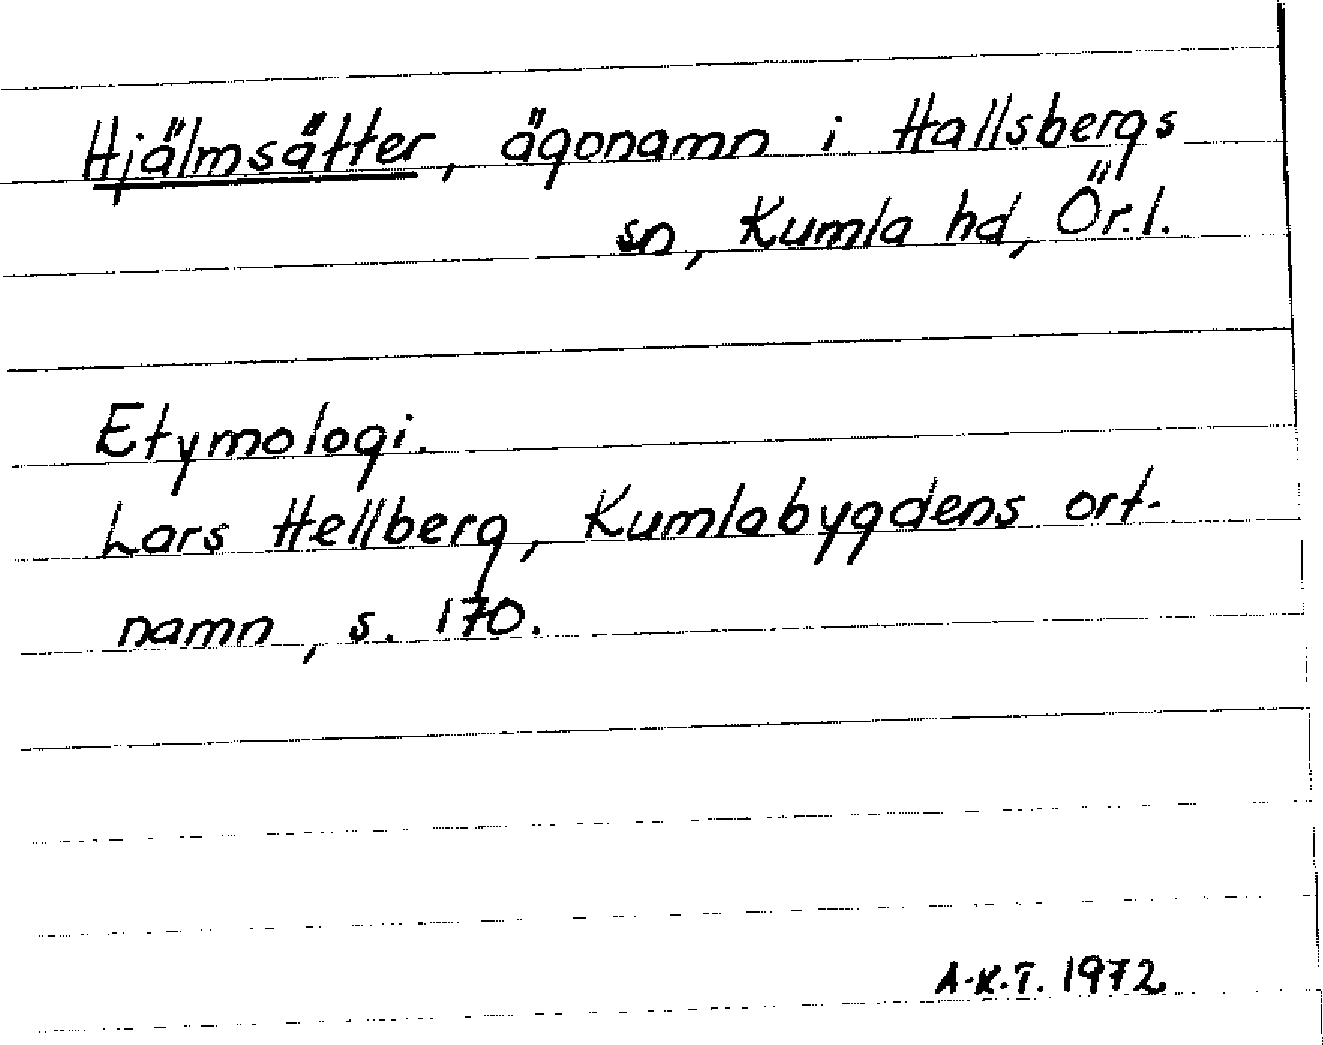 Hjälmsätter, ägonamn i Hallsbergs
sn, Kumla hd, Ör. l.
Etymologi.
Lars Hellberg, Kumlabygdens ort-
namn, s. 170.
A-K.T. 1972